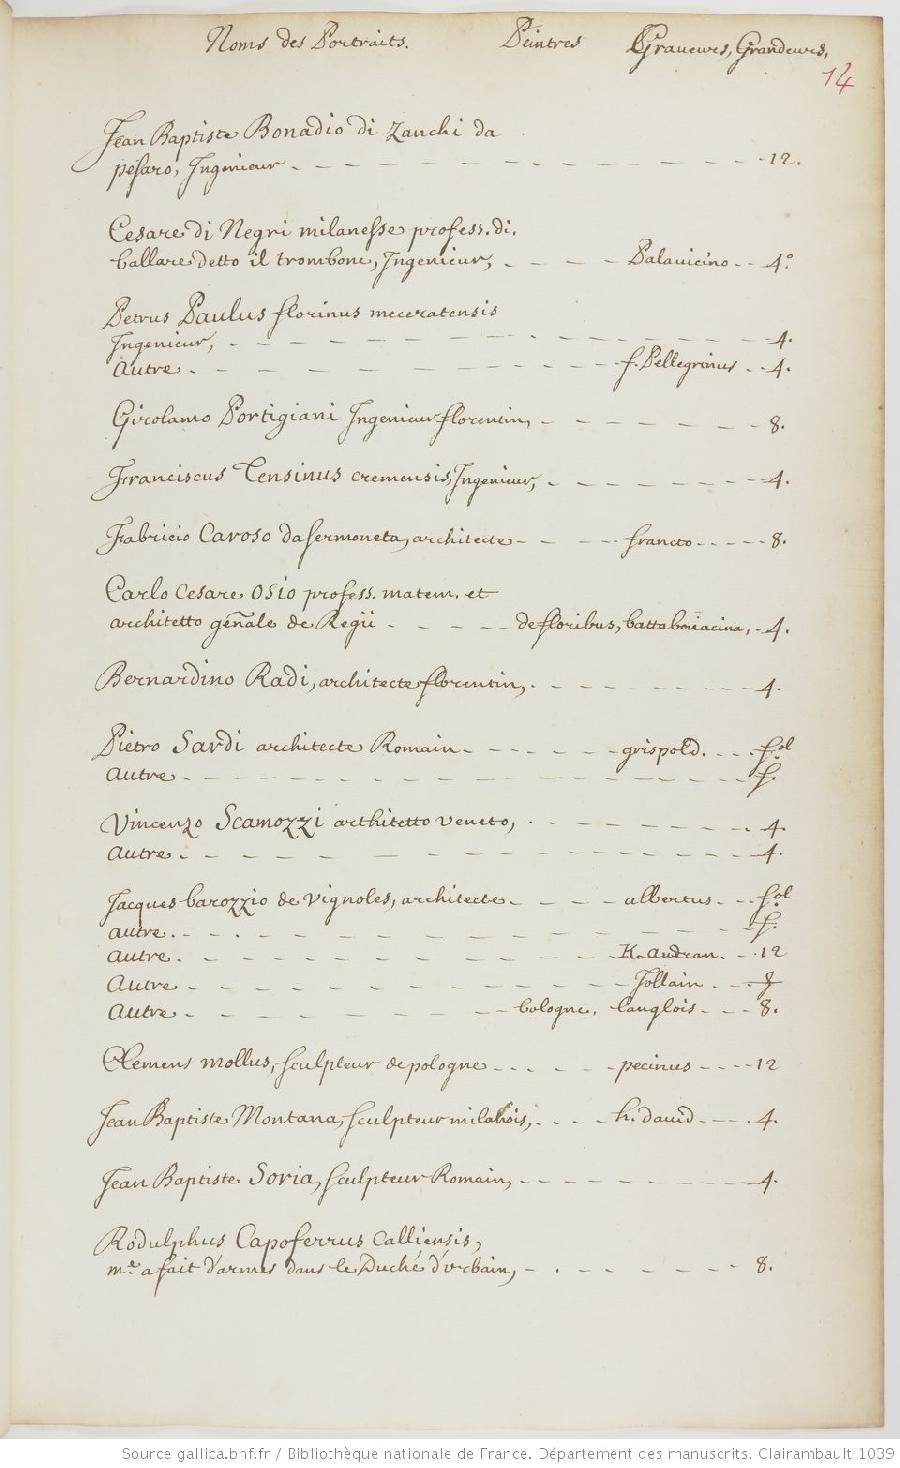 Noms des Portraits. Peintres Graueurs, Grandeurs.
14
Jean Baptiste Bonadio di Zanchi da
pesaro, Ingenieur - - - - - - - - - - - 12.
Cesare di Negri milanesse profess. di.
ballare detto il trombone, Ingenieur, - - - - Palauicino - - 4º.
Petrus Paulus florinus meceratensis
Ingenieur, - - - - - - - - - - - 4.
Autre - - - - - - - - f. Pellegrinus - - 4.
Girolamo Portigiani Ingenieur florentin, - - - - - - 8.
Franciscus Tensinus cremensis, Ingenieur, - - - - - - 4.
Fabricio Caroso da sermoneta, architecte - - - - francto - - - - - 8.
Carlo Cesare Osio profess. matem. et
architetto geñale de Regii - - - - - de floribus, batta boniacina, - 4.
Bernardino Radi, architecte florentin, - - - - - - - 4.
Pietro Sardi architecte Romain - - - - - - grispold. - - - fol.
Autre - - - - - - - - - - - - f.
Vincenzo Scamozzi architetto veneto, - - - - - - - 4.
Autre - - - - - - - - - - - - 4.
Jacques barozzio de vignoles, architecte - - - - albertus - - - fol.
autre - - - - - - - - - - - - f.
autre - - - - - - - - - K. audran - - - 12
Autre - - - - - - - - - Jollain - - - f
Autre - - - - - - - - bologne, langlois - - - 8.
Clemens mollus, sculpteur de pologne - - - - - - pecinus - - - - 12
Jean Baptiste Montana, sculpteur milanois, - - - - h. dauid - - - - 4.
Jean Baptiste Soria, sculpteur Romain, - - - - - - - - 4.
Rodulphus Capoferrus Calliensis,
mre a fait d'armes dans le Duché d'urbain, - - - - - - - 8.
Source gallica.bnf.fr / Bibliothèque nationale de France. Département des manuscrits. Clairambault 1039